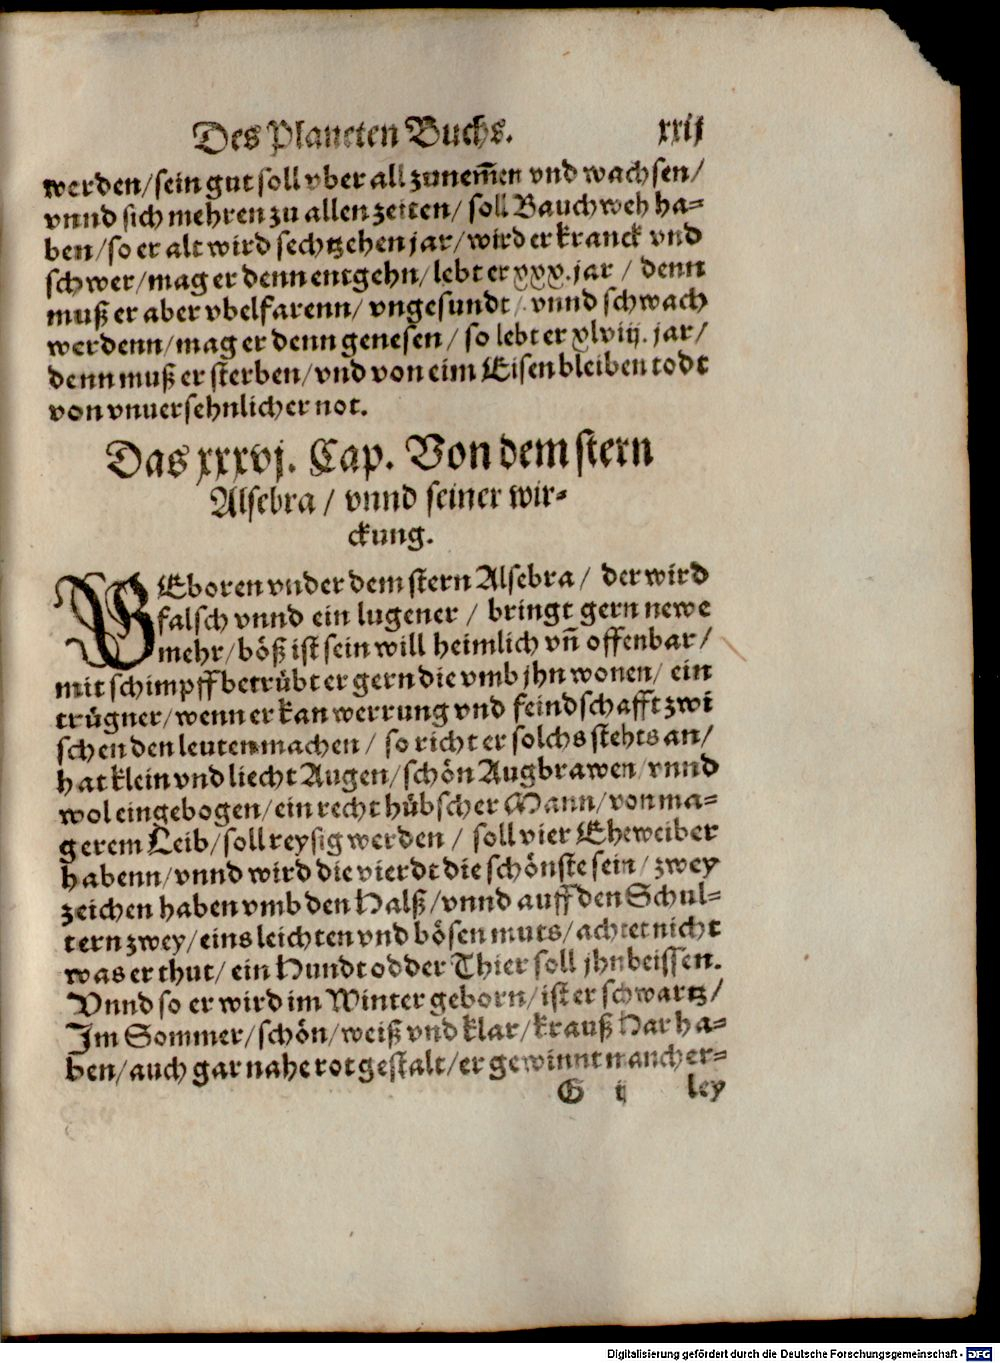 Des Planeten Buchs. xxij
werden/sein gut soll vber all zunem̃en vnd wachsen/
vnnd sich mehren zu allen zeiten/ soll Bauchweh ha=
ben/so er alt wird sechtzehen jar/wird er kranck vnd
schwer/mag er denn entgehn/lebt er xxx.jar / denn
muß er aber vbelfarenn/ vngesundt / vnnd schwach
werdenn/mag er denn genesen/ so lebt er xlviij. jar/
denn muß er sterben/vnd von eim Eisen bleiben todt
von vnuersehnlicher not.
Das xxxvj. Cap. Von dem stern
Alsebra / vnnd seiner wir=
ckung.
GEboren vnder dem stern Alsebra / der wird
falsch vnnd ein lugener / bringt gern newe
mehr/böß ist sein will heimlich vñ offenbar/
mit schimpff betrübt er gern die vmb jhn wonen/ ein
trügner/wenn er kan werrung vnd feindschafft zwi
schen den leuten machen / so richt er solchs stehts an/
hat klein vnd liecht Augen/schön Augbrawen/vnnd
wol eingebogen/ein recht hübscher Mann/von ma=
gerem Leib/soll reysig werden / soll vier Eheweiber
habenn/vnnd wird die vierdt die schönste sein/ zwey
zeichen haben vmb den Halß/vnnd auff den Schul=
tern zwey/eins leichten vnd bösen muts/achtet nicht
was er thut/ ein Hundt odder Thier soll jhn beissen.
Vnnd so er wird im Winter geborn/ist er schwartz/
Im Sommer/schön/weiß vnd klar/krauß Har ha=
ben/auch gar nahe rot gestalt/er gewinnt mancher=
G ij ley
Digitalisierung gefördert durch die Deutsche Forschungsgemeinschaft - DFG